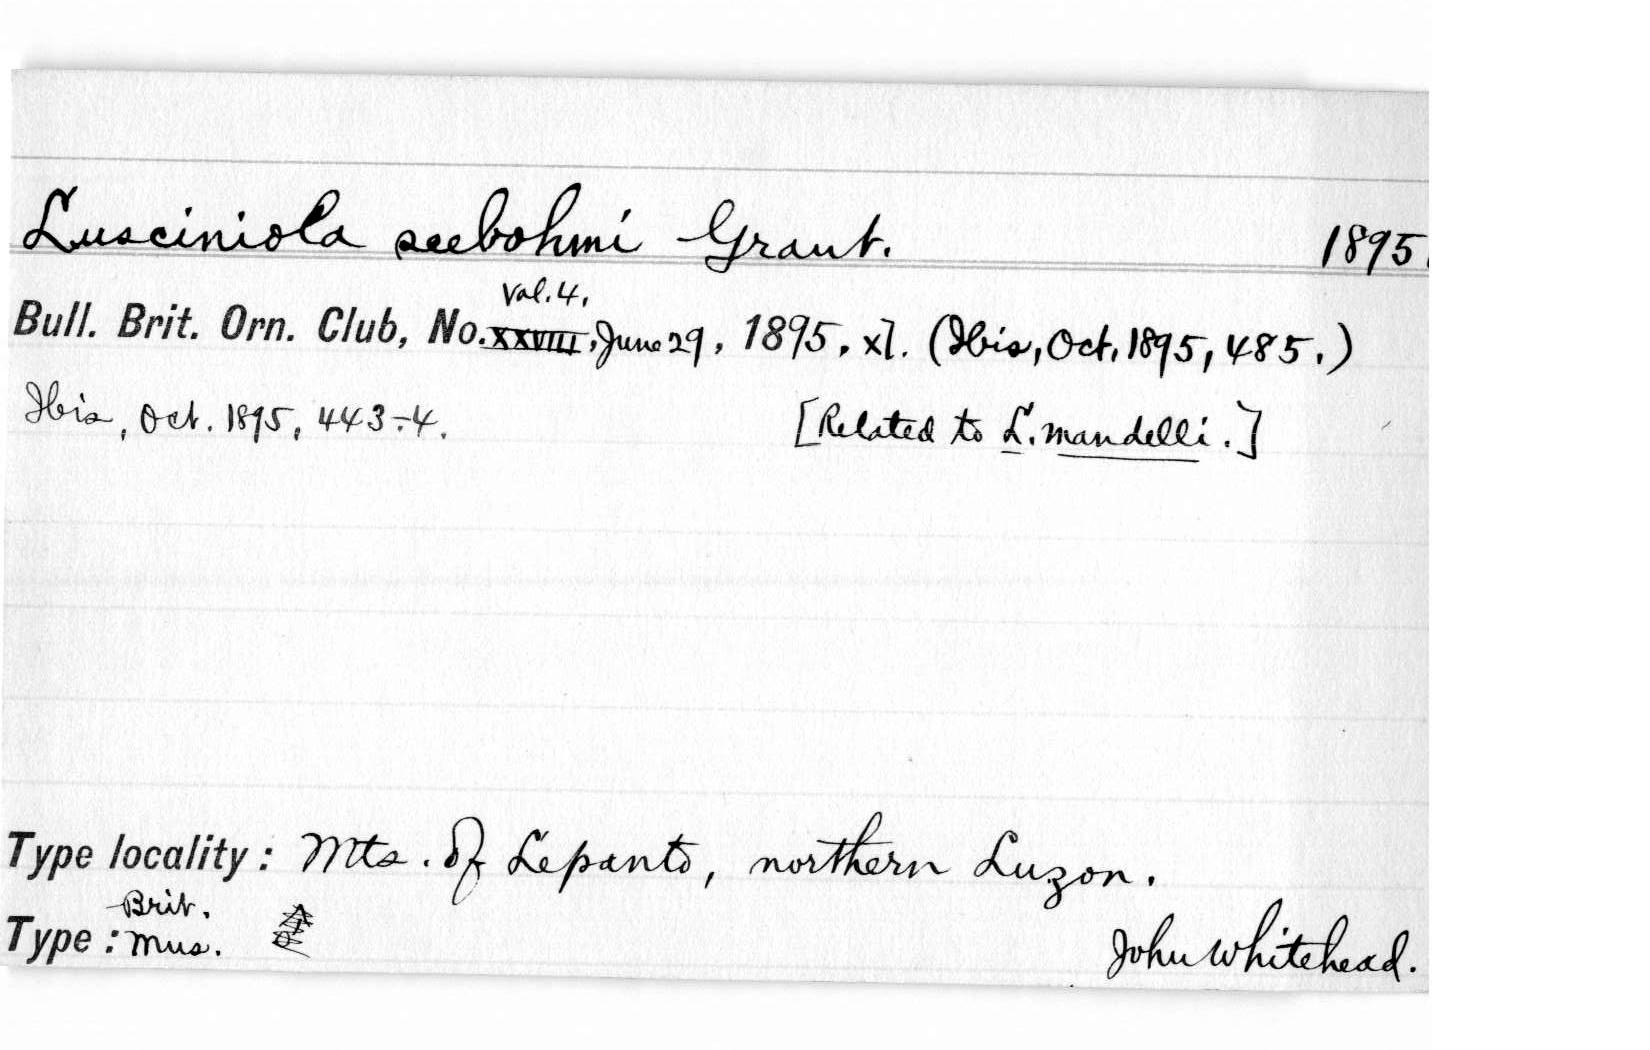 Lusciniola seebohmi Grant. 1895.
Vol. 4.
Bull. Brit. Orn. Club, No. XXVIII, June 29, 1895, xl. (Ibis, Oct. 1895, 485.)
Ibis, Oct. 1895, 443-4. [Related to L. mandelli.]
Type locality: Mts. of Lepanto, northern Luzon.
Brit.
Type: Mus. John Whitehead.